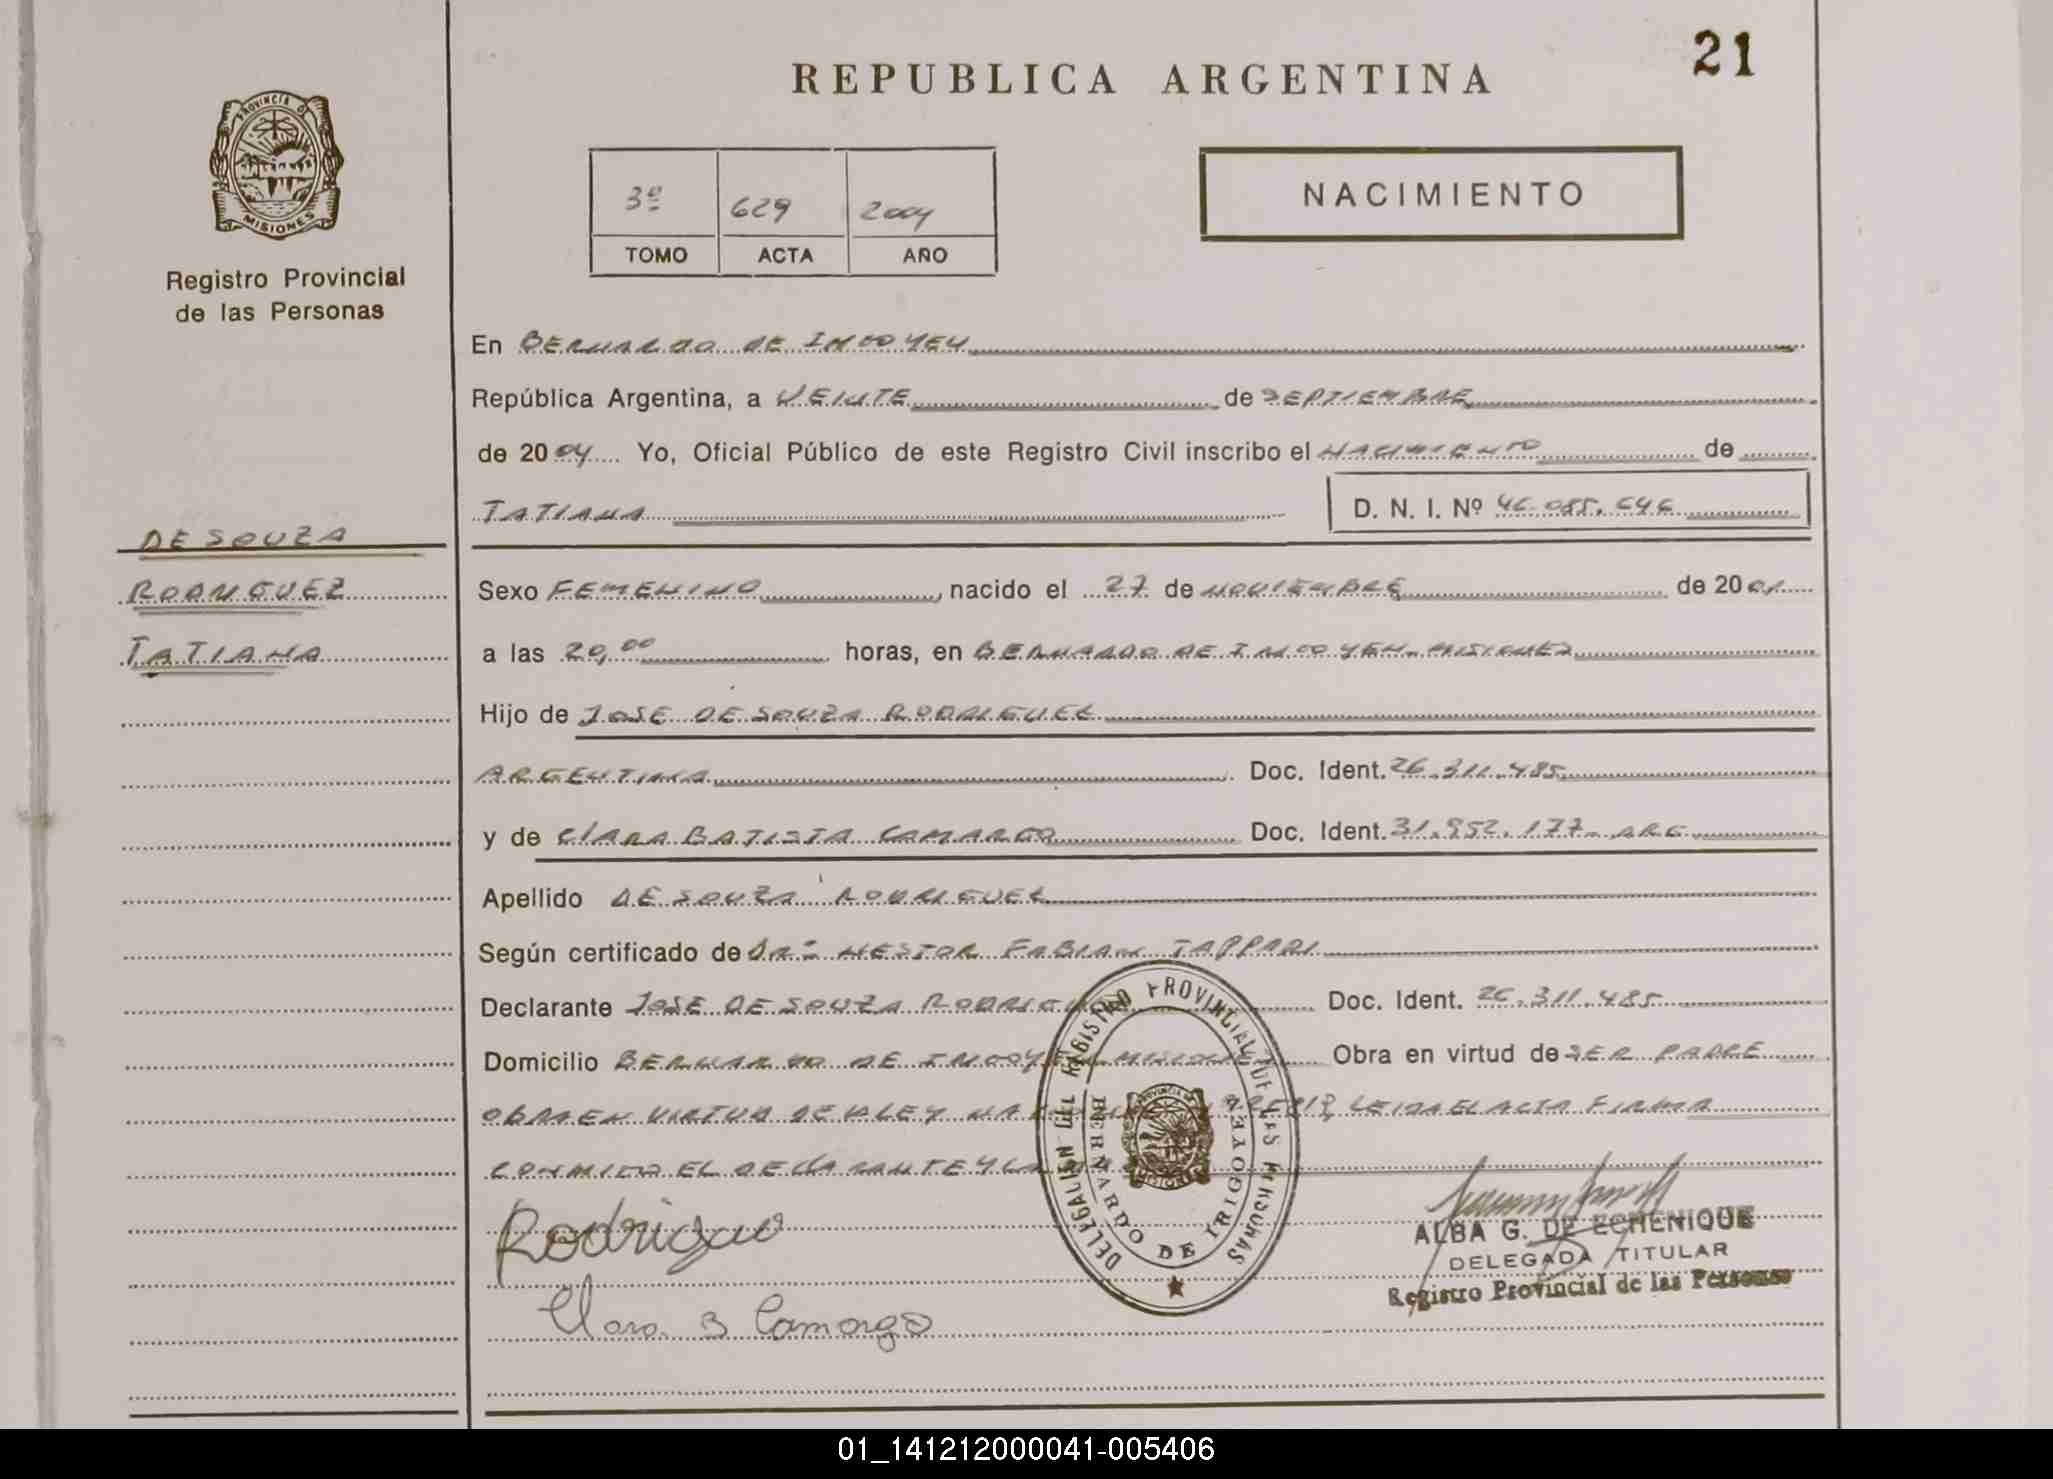 21
REPUBLICA ARGENTINA
PROVINCIA DE
MISIONES
Registro Provincial
de las Personas
3º 629 2004
TOMO ACTA AÑO
NACIMIENTO
En BERNARDO DE IRIGOYEN
República Argentina, a VEINTE de SEPTIEMBRE
de 2004 Yo, Oficial Público de este Registro Civil inscribo el NACIMIENTO de
TATIANA D. N. I. Nº 46.085.646
DE SOUZA
RODRIGUEZ
TATIANA
Sexo FEMENINO, nacido el 27 de NOVIEMBRE de 2001
a las 20,00 horas, en BERNARDO DE IRIGOYEN-MISIONES
Hijo de JOSE DE SOUZA RODRIGUEZ
ARGENTINA Doc. Ident. 26.311.485
y de CLARA BATISTA CAMARGO Doc. Ident. 31.952.177- ARG
Apellido DE SOUZA RODRIGUEZ
Según certificado de Dr. NESTOR FABIAN TAPPARI
Declarante JOSE DE SOUZA RODRIGUEZ Doc. Ident. 26.311.485
Domicilio BERNARDO DE IRIGOYEN MISIONES Obra en virtud de SER PADRE
OBRA EN VIRTUD DE LA LEY LEIDA EL ACTA FIRMA
CONMIGO EL DECLARANTE Y LA
DELEGACION DEL REGISTRO PROVINCIAL DE LAS PERSONAS
BERNARDO DE IRIGOYEN
Rodrigue
Clara B Camargo
ALBA G. DE ECHENIQUE
DELEGADA TITULAR
Registro Provincial de las Personas
01_141212000041-005406